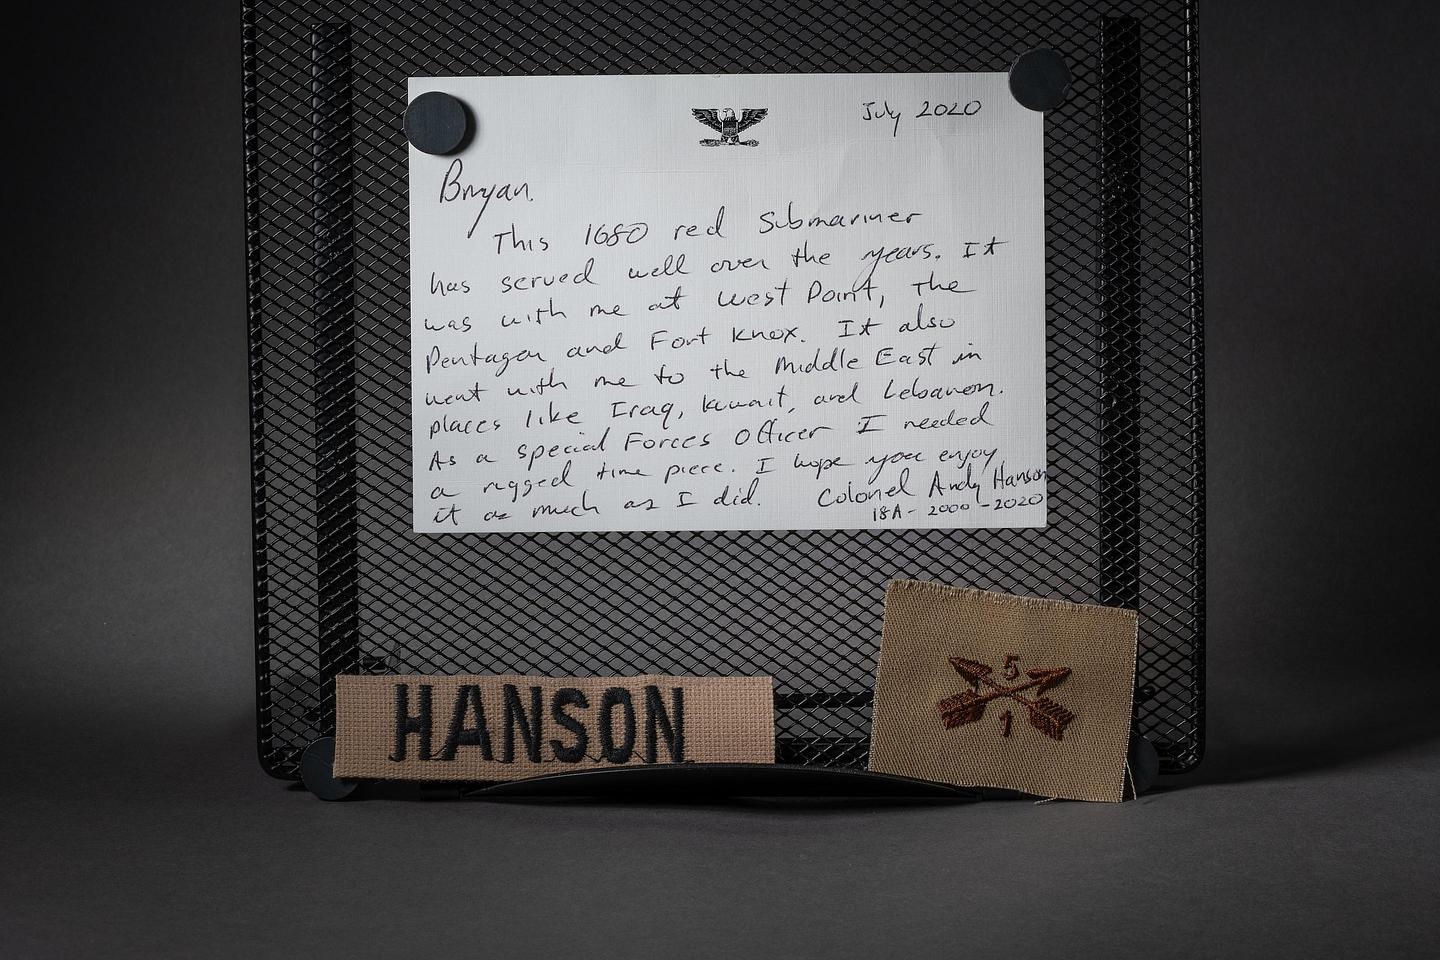 July 2020
Bryan.
This 1680 red Submariner
has served well over the years. It
was with me at West Point, The
Pentagon and Fort Knox. It also
went with me to the Middle East in
places like Iraq, Kuwait, and Lebanon.
As a special Forces Officer I needed
a rugged time piece. I hope you enjoy
it as much as I did.
Colonel Andy Hanson
18A - 2000 - 2020
HANSON
5
1